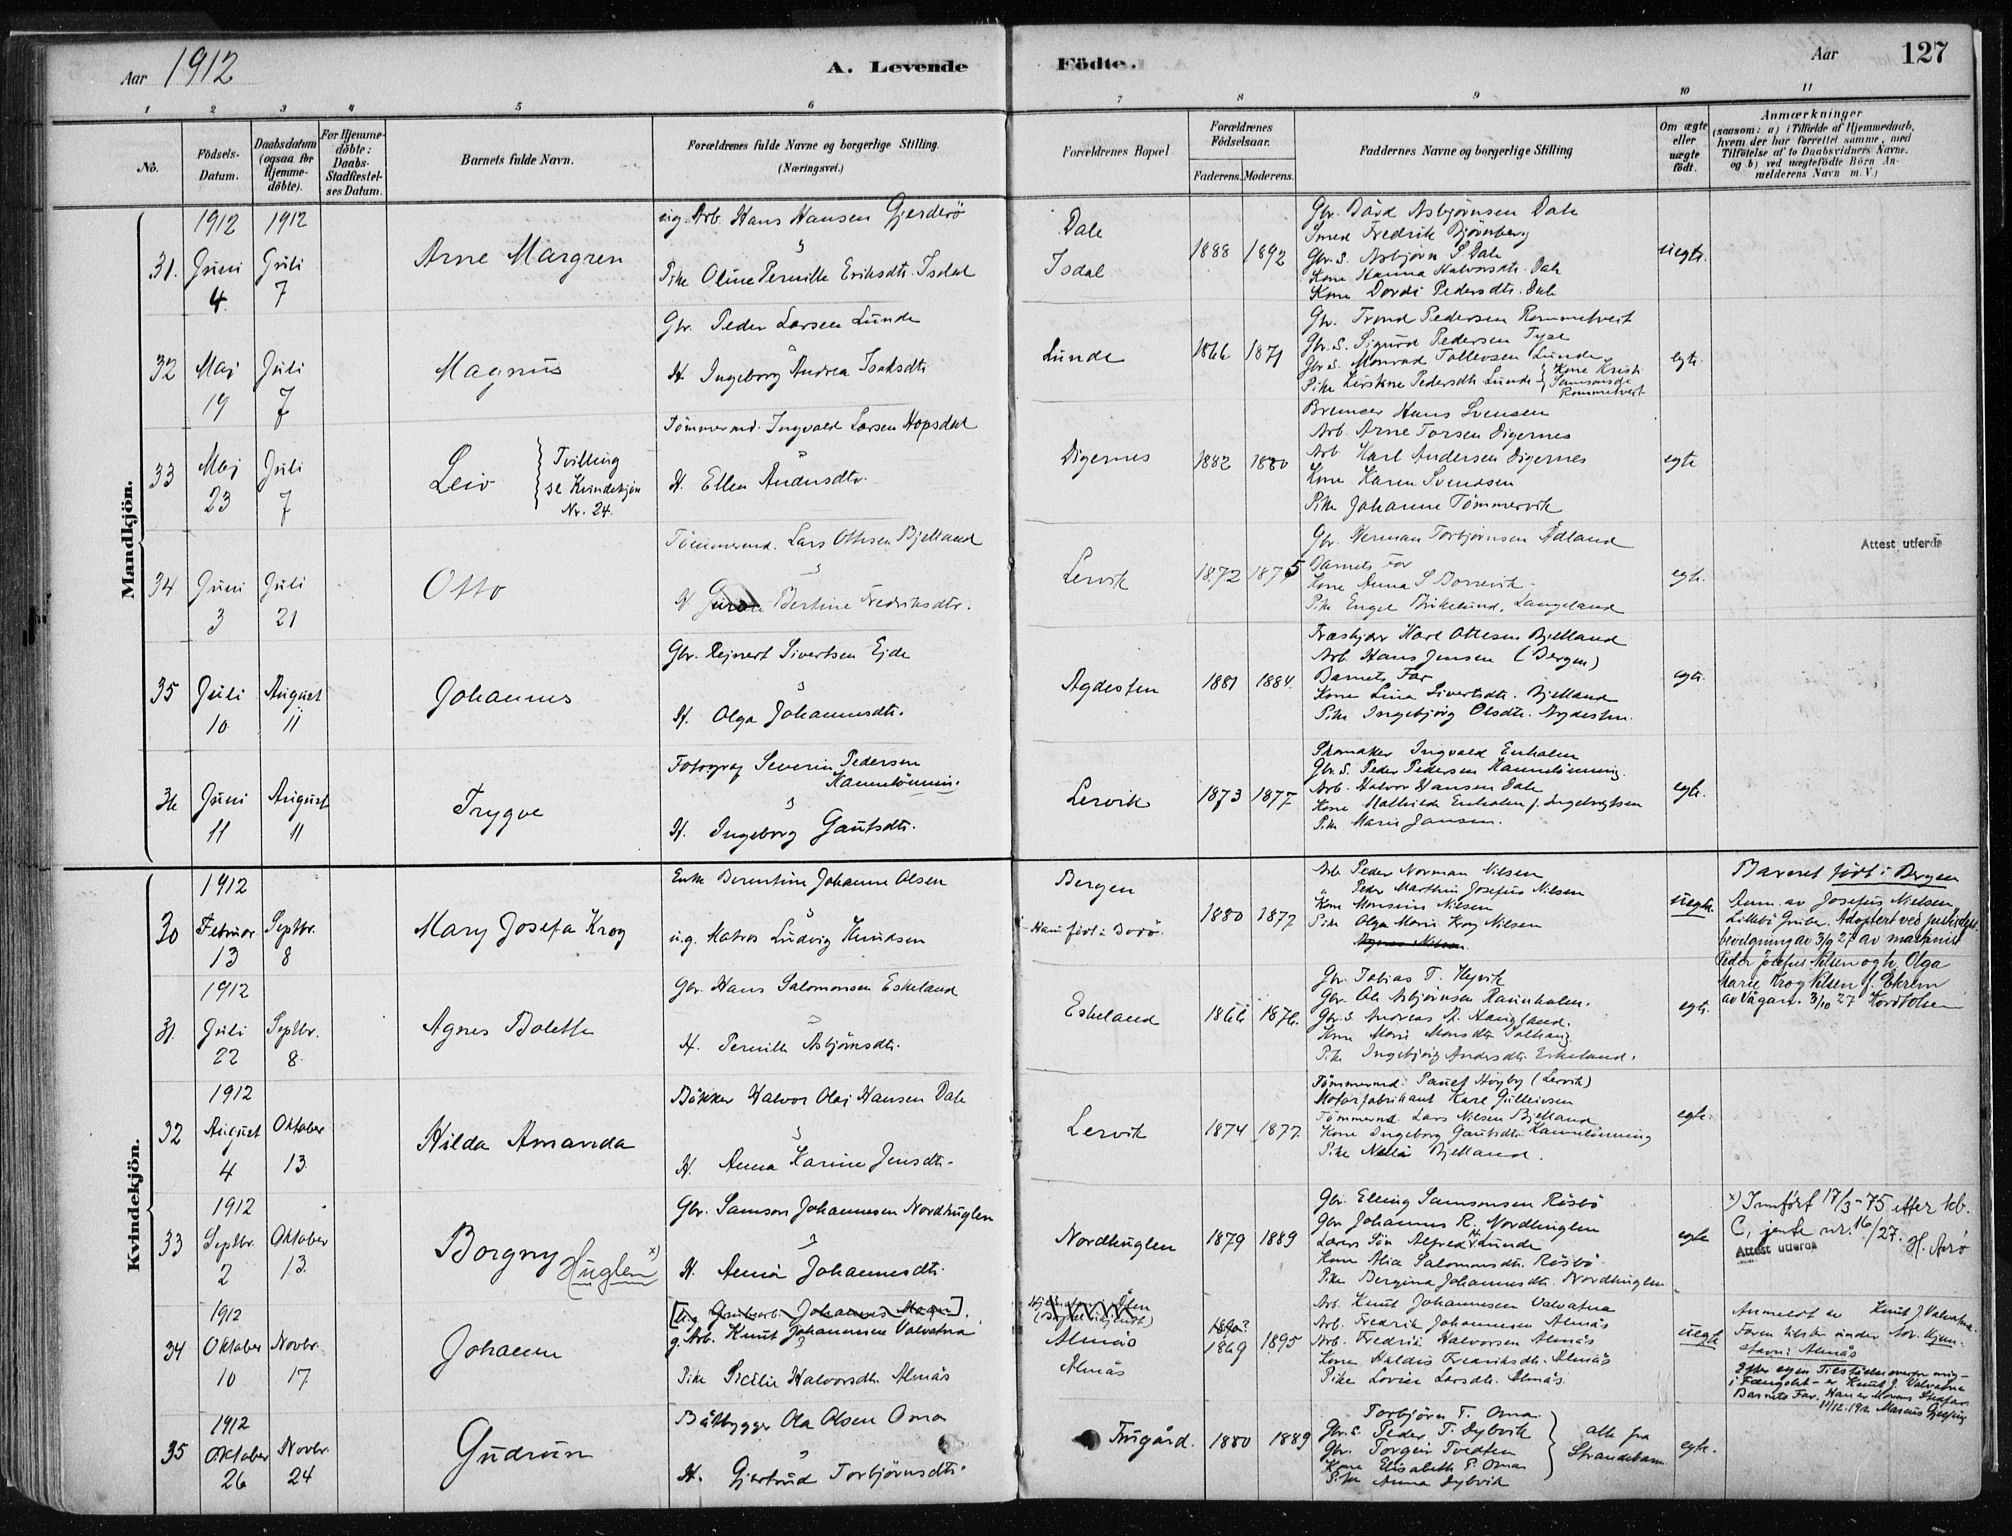 Aar 1912
A. Levende Födte.
Aar 127
1 2 3 4 5 6 7 8 9 10 11
No.
Födsels-Datum.
Daabsdatum (ogsaa for Hjemme-döbte).
For Hjemme-döbte: Daabs-Stadfæstel-ses Datum.
Barnets fulde Navn.
Forældrenes fulde Navne og borgerlige Stilling.
(Næringsvei.)
Forældrenes Bopæl.
Forældrenes Födselsaar.
Faderens. Moderens.
Faddernes Navne og borgerlige Stilling
Om ægte eller uægte födt.
Anmærkninger
(saasom: a) i Tilfælde af Hjemmedaab,
hvem der har forrettet samme, med
Tilföielse af to Daabsvidners Navne.
og b) ved uægtefödte Börn An-
melderens Navn m. V.)
Mandkjön.
31. 1912 Juni 4. 1912 Juli 7
Arne Margren
ug. Arb. Hans Hansen Gjerderö
Pike Oline Pernille Eriksdtr. Isdal
Dale
Isdal
1888 1892
Gbr. Bård Asbjørnsen Dale
Smed Fredrik Bjørnberg
Gbr. S. Asbjørn S. Dale
Kone Hanna Halvorsdtr. Dale
Kone Dordi Pedersdtr. Dale
uegte.
32 Maj 19 Juli 7
Magnus
Gbr. Peder Larsen Lunde
H. Ingeborg Andrea Isaksdtr
Lunde
1866 1871
Gbr. Trond Pedersen Rommetveit
Gbr. S. Sigurd Pedersen Tyse
Gbr. S. Monrad Tollevsen Lunde
Pike Kirstine Pedersdtr Lunde } Kone Kristi Samsonsdtr Rommetveit
egte
33 Maj 23 Juli 7
Leiv } Tvilling se Kvindekjøn Nr. 24.
Tömmermd. Ingvald Larsen Hopsdal
H. Ellen Andersdtr.
Digernes
1882 1880
Hans Svensen
Arb. Arne Torsen Digernes
Arb. Karl Andersen Digernes
Kone Karen Svendsen
Pike Johanne Tömmervik
egte
34 Juni 3 Juli 21
Otto
Tömmermd. Lars Ottesen Bjelland
H Bertine Fredriksdtr.
Lervik
1872 1875
Gbr. Herman Torbjørnsen Ådland
Barnets Far
Kone Anna S. Borrevik
Pike Engel Birkelund, Langeland
egte.
Attest utferda
35 Juli 10 August 11
Johannes
Gbr. Rejnert Sivertsen Ejde
H. Olga Johannesdtr.
Agdesten
1881 1884.
Karl Ottesen Bjelland
Arb. Hans Jensen (Bergen)
Barnets Far
Kone Lina Sivertsdtr. Bjelland
Pike Ingebjörg Olsdtr. Agdesten.
egte.
36 Juni 11 August 11
Trygve
Fotograf Severin Pedersen Kannelönning.
H. Ingeborg Gautsdtr.
Lervik
1873 1877
Skomaker Ingvald Enholm
Gbr. S. Peder Pedersen Kannelönning.
Arb. Halvor Hansen Dale
Kone Mathilde Enholm f. Ingebrigtsen
Pike Marie Jansen.
egte.
Kvindekjön.
30 1912 Februar 13 Septbr. 8
Mary Josefa Krog
Enke Berentine Johanne Olsen
u.g. Matros Ludvig Knudsen
Bergen
Han født i Bodö.
1880 1877
Arb. Peder Norman Nilsen
" Peder Marthin Josefus Nilsen
Kone Monsine Nilsen
Pike Olga Marie Krog Nilsen
uegte.
Barnet født i Bergen
Anm. av Josefus Nielsen
Lillebö Gruber. Adoptert ved justisdept.
bevilgning av 3/9 27 av maskinist
Peder Josefus Nilsen og h. Olga
Marie Krog Nilsen f. Ekrem
av Vågan. 3/10 27
31. 1912 Juli 22 Septbr. 8.
Agnes Bolette
Gbr. Hans Salomonsen Eskeland
H. Pernille Asbjørnsdtr.
Eskeland
1866 1876.
Gbr. Tobias T. Hejvik
Gbr. Ole Asbjørnsen Ravnholm.
Gbr. S. Andreas A. Haugland.
Kone Marie Monsdtr.
Pike Ingebjörg Andersdtr. Eskeland.
egte.
32 1912 August 4 Oktober 13.
Hilda Amanda
Bökker Halvor Olaj Hansen Dale
H. Anna Karine Jensdtr.
Lervik
1874 1877.
Tömmermd. Paul Högby (Lervik)
Motorfabrikant Karl Gilleivsen
Tömmermd. Lars Nilsen Bjelland
Kone Ingeborg Gautsdtr. Kannelönning
Pike Bjelland.
egte.
33 1912 Septbr. 2 Oktober 13.
Borgny Huglen x)
Gbr. Samson Johannesen Nordhuglen
H. Anna Johannesdtr.
Nordhuglen
1879 1889
Gbr. Elling Samsonsen Rösbö
Gbr. Johannes R. Nordhuglen
Alfred Lunde
Kone Alia Salomonsdtr. Rösbö
Pike Bergina Johannesdtr. Nordhuglen
egte
x) Innført 17/3-75 etter kb.
C, jente nr. 16/27. H. Arö
Attest utferda
34 1912 Oktober 10 Novbr. 17.
Johanne
[ug. Grubearb. Johannes Moen].
g. Arb. Knut Johannesen Valvatna
Pike Sicilie Halvorsdtr. Almås
Almås
Almås
1869 1895
Arb. Knut Johannesen Valvatna
Arb. Fredrik Johannesen Almås
Arb. Fredrik Halvorsen Almås
Kone Haldis Fredriksdtr. Almås
Pike Lovise Larsdtr. Almås.
uegte
Anmeldt av Knut J. Valvatna.
Almås
Efter egen Tilståelse overfor mig
i Fængslet er Knut J. Valvatna
Barnets Far. Han er Morens Stedfar.
11/12. 1912 Marius Gjessing
35 1912 Oktober 26 Novbr. 24
Gudrun
Båtbygger Ola Olsen Oma
H. Gjertrud Torbjørnsdtr.
Frugård.
1880 1889
Torbjørn T. Oma
Gbr. S. Peder T. Dybvik
Gbr. Torgeir Tvedten
Kone Elisabeth P. Oma
Pike Anna Dybvik
} alle fra Strandebarm
egte.